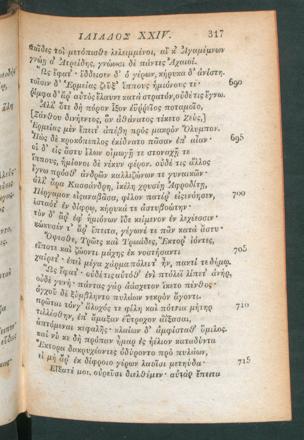 ΙΛΙΑΔΟΣ XXIV. 317
παῖδες τοὶ μετόπισθε λελειμμένοι, αἴ κ' Ἀγαμέμνων
γνώῃ σ' Ἀτρείδης, γνώωσι δὲ πάντες Ἀχαιοί.
Ὣς ἔφατ'· ἔδδεισεν δ' ὁ γέρων, κήρυκα δ' ἀνίστη.
τοῖσιν δ' Ἑρμείας ζεῦξ' ἵππους ἡμιόνους τε· 690
ῥίμφα δ' ἄρ' αὐτὸς ἔλαυνε κατὰ στρατὸν, οὐδέ τις ἔγνω.
Ἀλλ' ὅτε δὴ πόρον ἷξον ἐϋῤῥεῖος ποταμοῖο,
[Ξάνθου δινήεντος, ὃν ἀθάνατος τέκετο Ζεὺς,]
Ἑρμείας μὲν ἔπειτ' ἀπέβη πρὸς μακρὸν Ὄλυμπον.
Ἠὼς δὲ κροκόπεπλος ἐκίδνατο πᾶσαν ἐπ' αἶαν· 695
οἱ δ' εἰς ἄστυ ἔλων οἰμωγῇ τε στοναχῇ τε
ἵππους, ἡμίονοι δὲ νέκυν φέρον. οὐδέ τις ἄλλος
ἔγνω πρόσθ' ἀνδρῶν καλλιζώνων τε γυναικῶν·
ἀλλ' ἄρα Κασσάνδρη, ἰκέλη χρυσέῃ Ἀφροδίτῃ,
Πέργαμον εἰσαναβᾶσα, φίλον πατέρ' εἰσενόησεν, 700
ἑσταότ' ἐν δίφρῳ, κήρυκά τε ἀστυβοώτην·
τὸν δ' ἄρ' ἐφ' ἡμιόνων ἴδε κείμενον ἐν λεχέεσσιν·
κώκυσέν τ' ἄρ' ἔπειτα, γέγωνέ τε πᾶν κατὰ ἄστυ·
Ὄψεσθε, Τρῶες καὶ Τρωάδες, Ἕκτορ' ἰόντες,
εἴποτε καὶ ζώοντι μάχης ἐκ νοστήσαντι 705
χαίρετ'· ἐπεὶ μέγα χάρμα πόλει τ' ἦν, παντί τε δήμῳ.
Ὣς ἔφατ'· οὐδέ τις αὐτόθ' ἐνὶ πτόλεϊ λίπετ' ἀνὴρ,
οὐδὲ γυνή· πάντας γὰρ ἀάσχετον ἵκετο πένθος·
ἀγχοῦ δὲ ξύμβληντο πυλάων νεκρὸν ἄγοντι.
πρῶται τόνγ' ἄλοχός τε φίλη καὶ πότνια μήτηρ 710
τιλλέσθην, ἐπ' ἄμαξαν ἐΰτροχον ἀΐξασαι,
ἁπτόμεναι κεφαλῆς· κλαίων δ' ἀμφίσταθ' ὅμιλος.
καί νύ κε δὴ πρόπαν ἦμαρ ἐς ἠέλιον καταδύντα
Ἕκτορα δακρυχέοντες ὀδύροντο πρὸ πυλάων,
εἰ μὴ ἄρ' ἐκ δίφροιο γέρων λαοῖσι μετηύδα· 715
Εἴξατέ μοι, οὐρεῦσι διελθέμεν· αὐτὰρ ἔπειτα